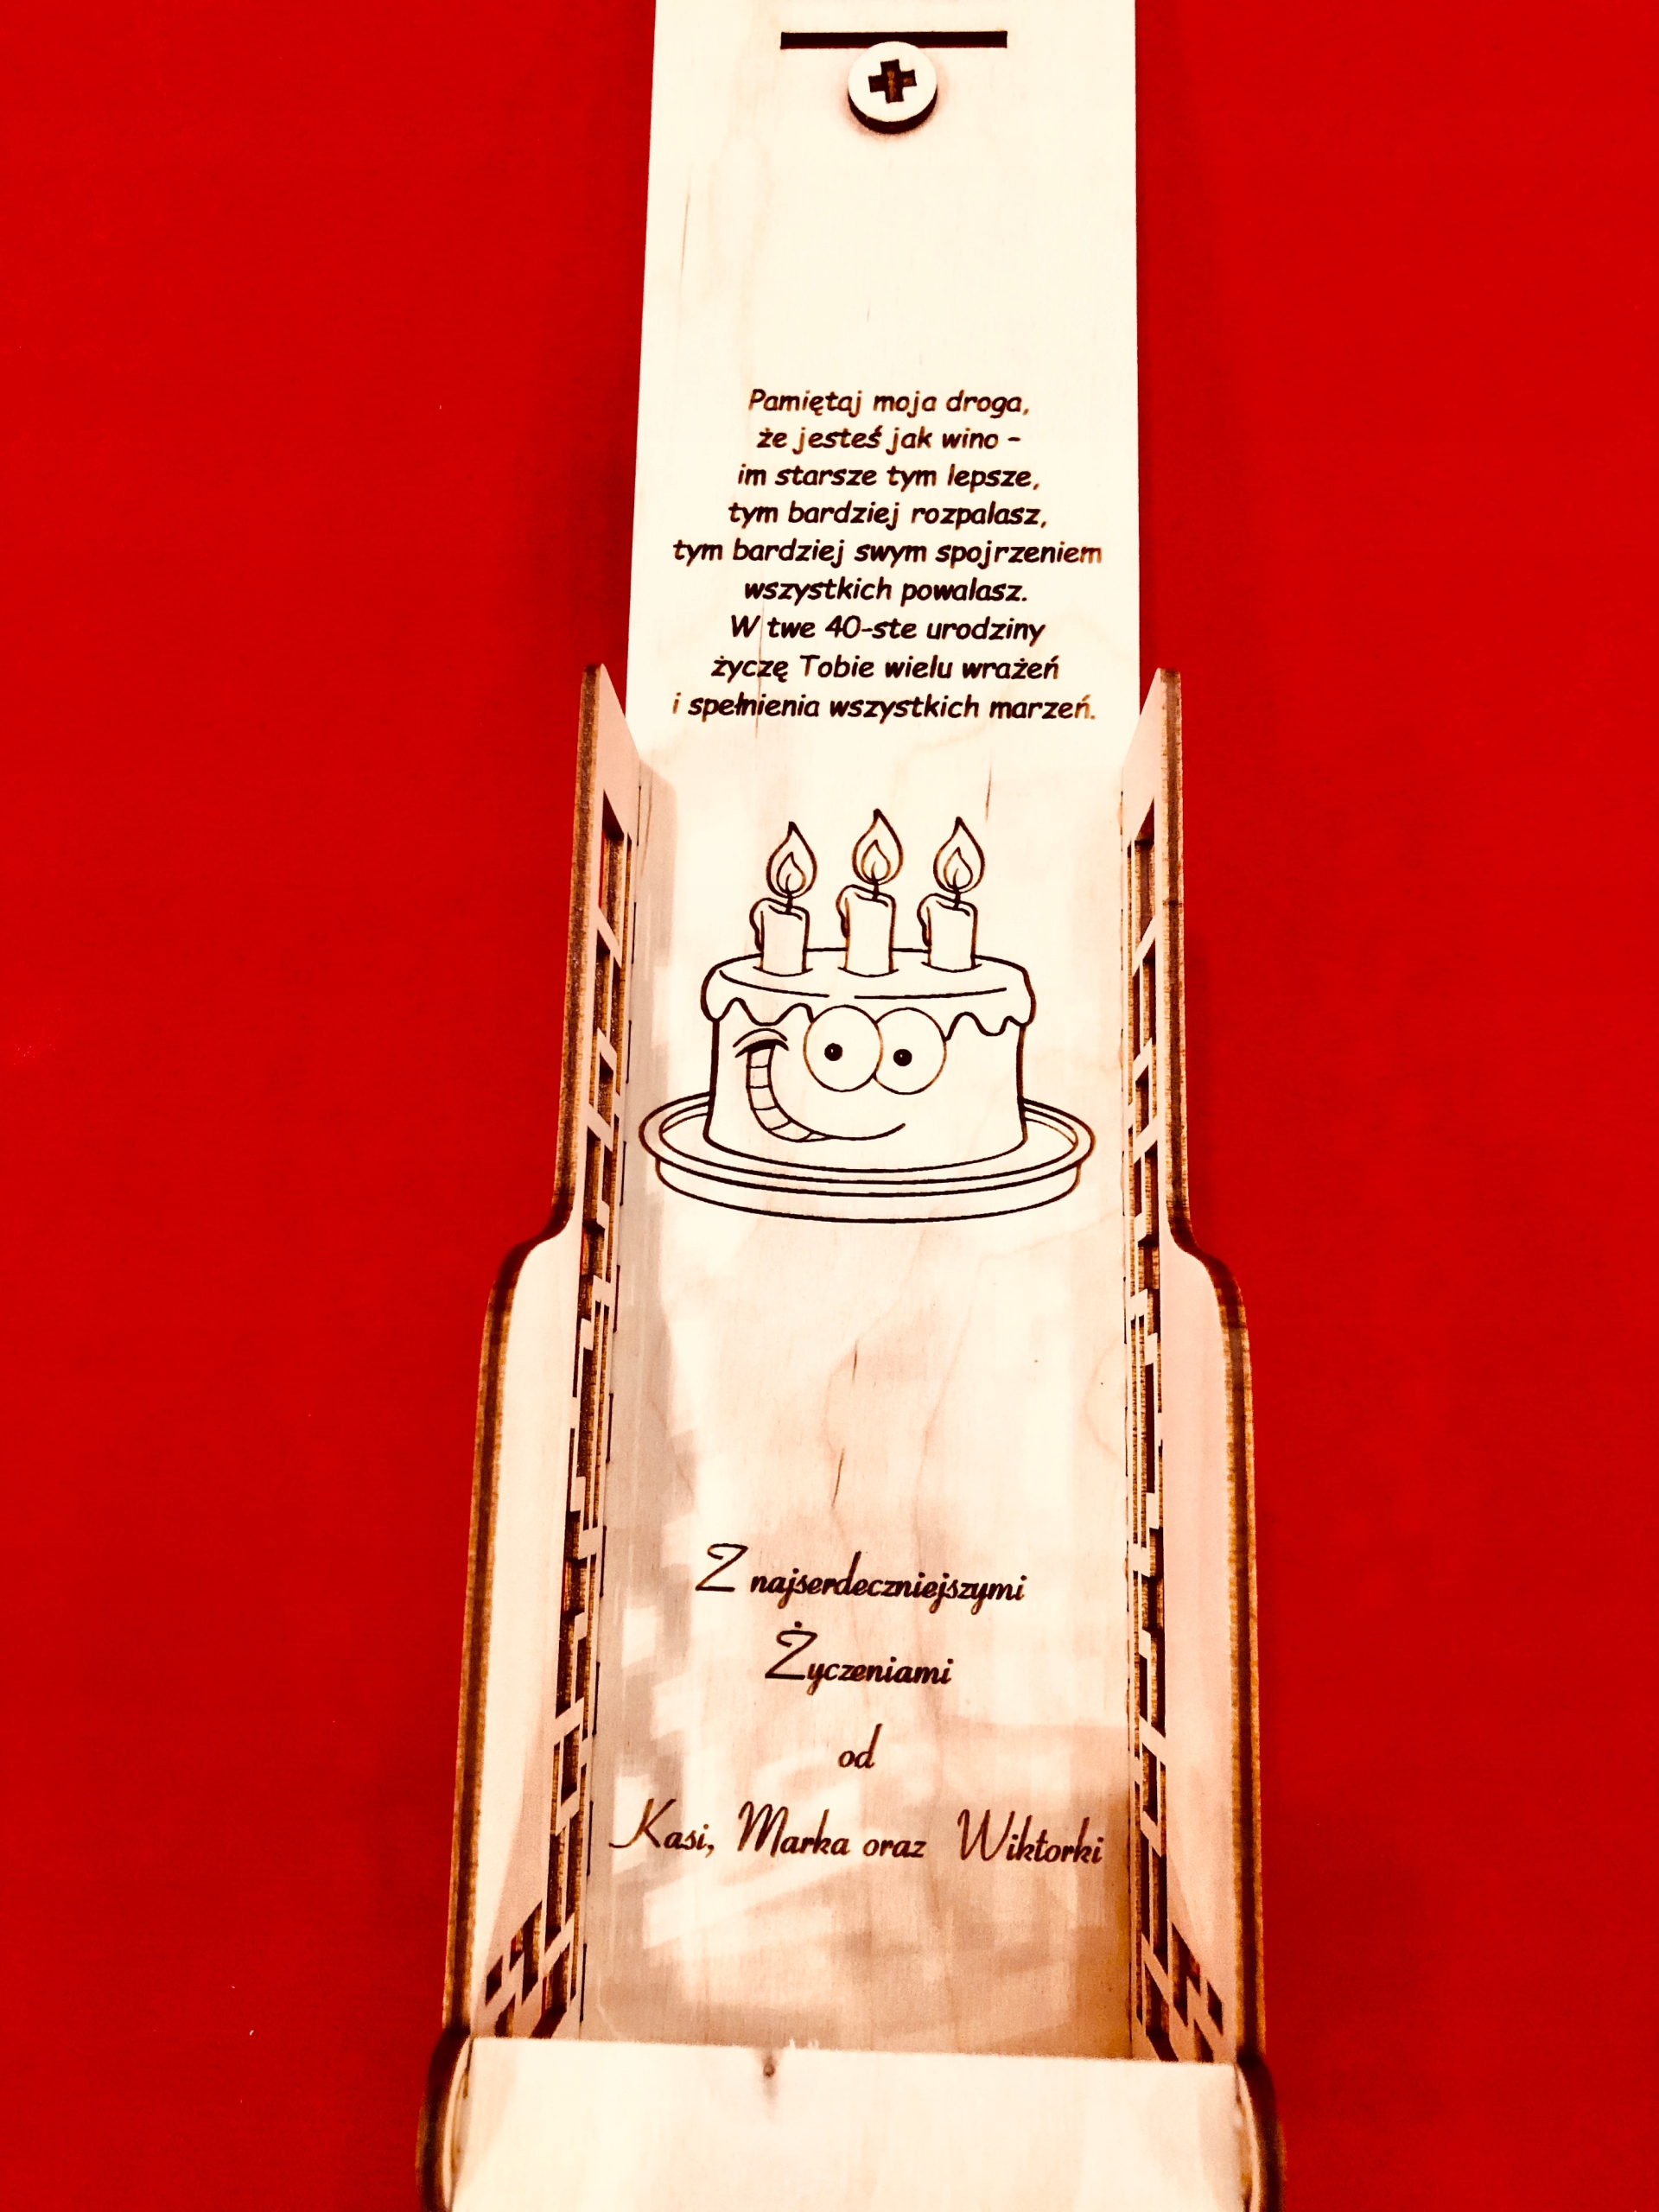 Pamiętaj moja droga,
że jesteś jak wino -
im starsze tym lepsze,
tym bardziej rozpalasz,
tym bardziej swym spojrzeniem
wszystkich powalasz.
W twe 40-ste urodziny
życzę Tobie wielu wrażeń
i spełnienia wszystkich marzeń.
Z najserdeczniejszymi
Życzeniami
od
Kasi, Marka oraz Wiktorki